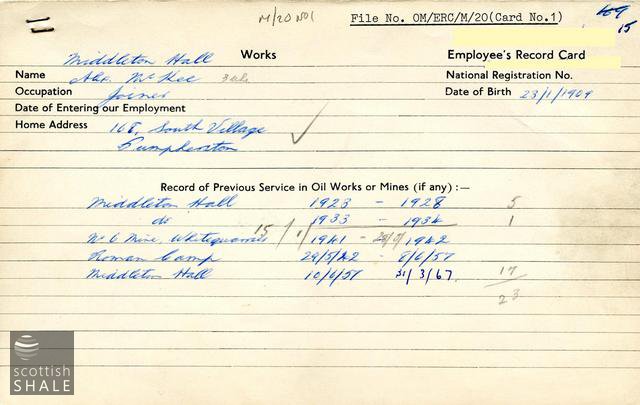 M/20 NO1
File No. OM/ERC/M/20(Card No.1)
69
15
Middleton Hall Works
Employee's Record Card
Name Alex. McKee
National Registration No.
Occupation Joiner
Date of Birth 23/1/1909
Date of Entering our Employment
Home Address 168, South Village
Pumpherston
Record of Previous Service in Oil Works or Mines (if any) :—
Middleton Hall 1923 - 1928 5
do 1933 - 1934 1
No 6 Mine, Whitequarries 15/1/1941 - 1942
Roman Camp 29/5/42 - 8/6/57
Middleton Hall 10/6/57 31/3/67 17
23
scottish
SHALE